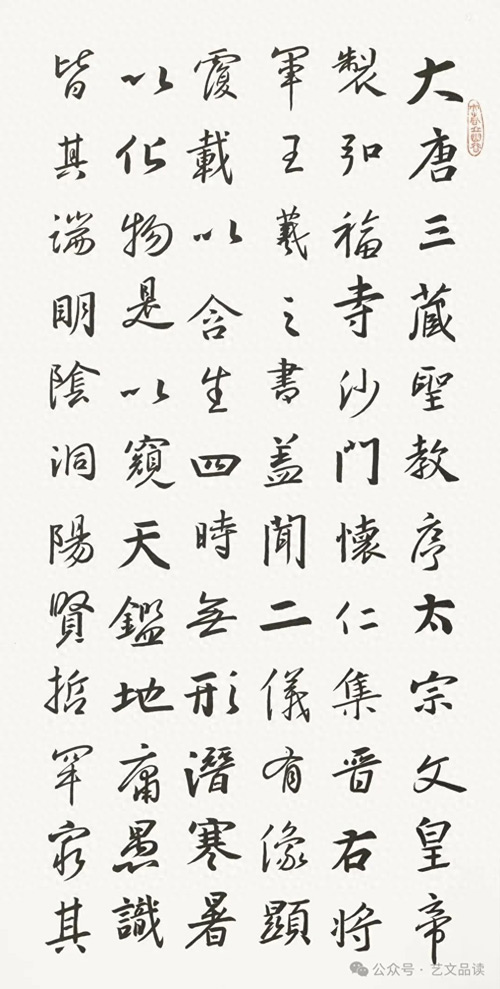 大唐三藏聖教序太宗文皇帝
製弘福寺沙門懷仁集晉右將
軍王羲之書盖聞二儀有像顯
覆載以含生四時無形潛寒暑
以化物是以窺天鑑地庸愚識
皆其端明陰洞陽賢哲罕窮其
公众号 · 艺文品读